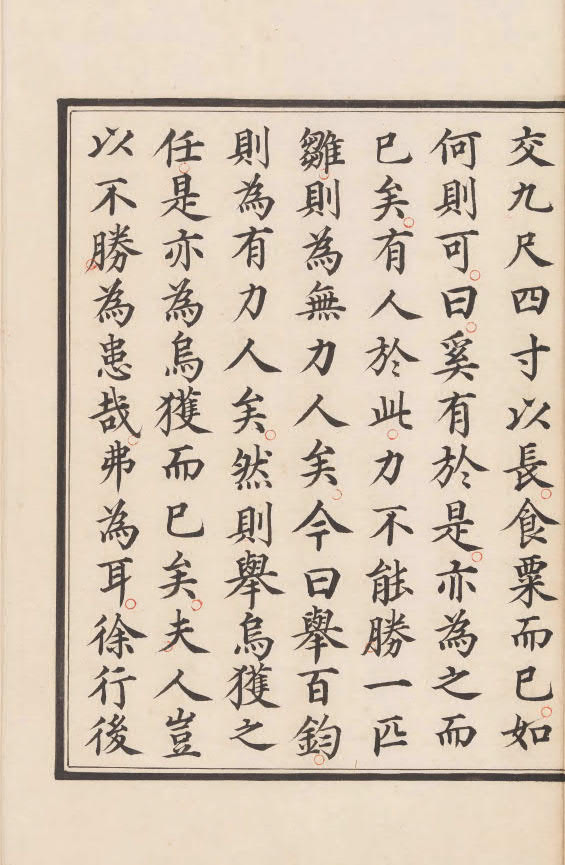 交九尺四寸以長食粟而已如
何則可曰奚有於是亦為之而
已矣有人於此力不能勝一匹
雛則為無力人矣今曰舉百鈞
則為有力人矣然則舉烏獲之
任是亦為烏獲而已矣夫人豈
以不勝為患哉弗為耳徐行後